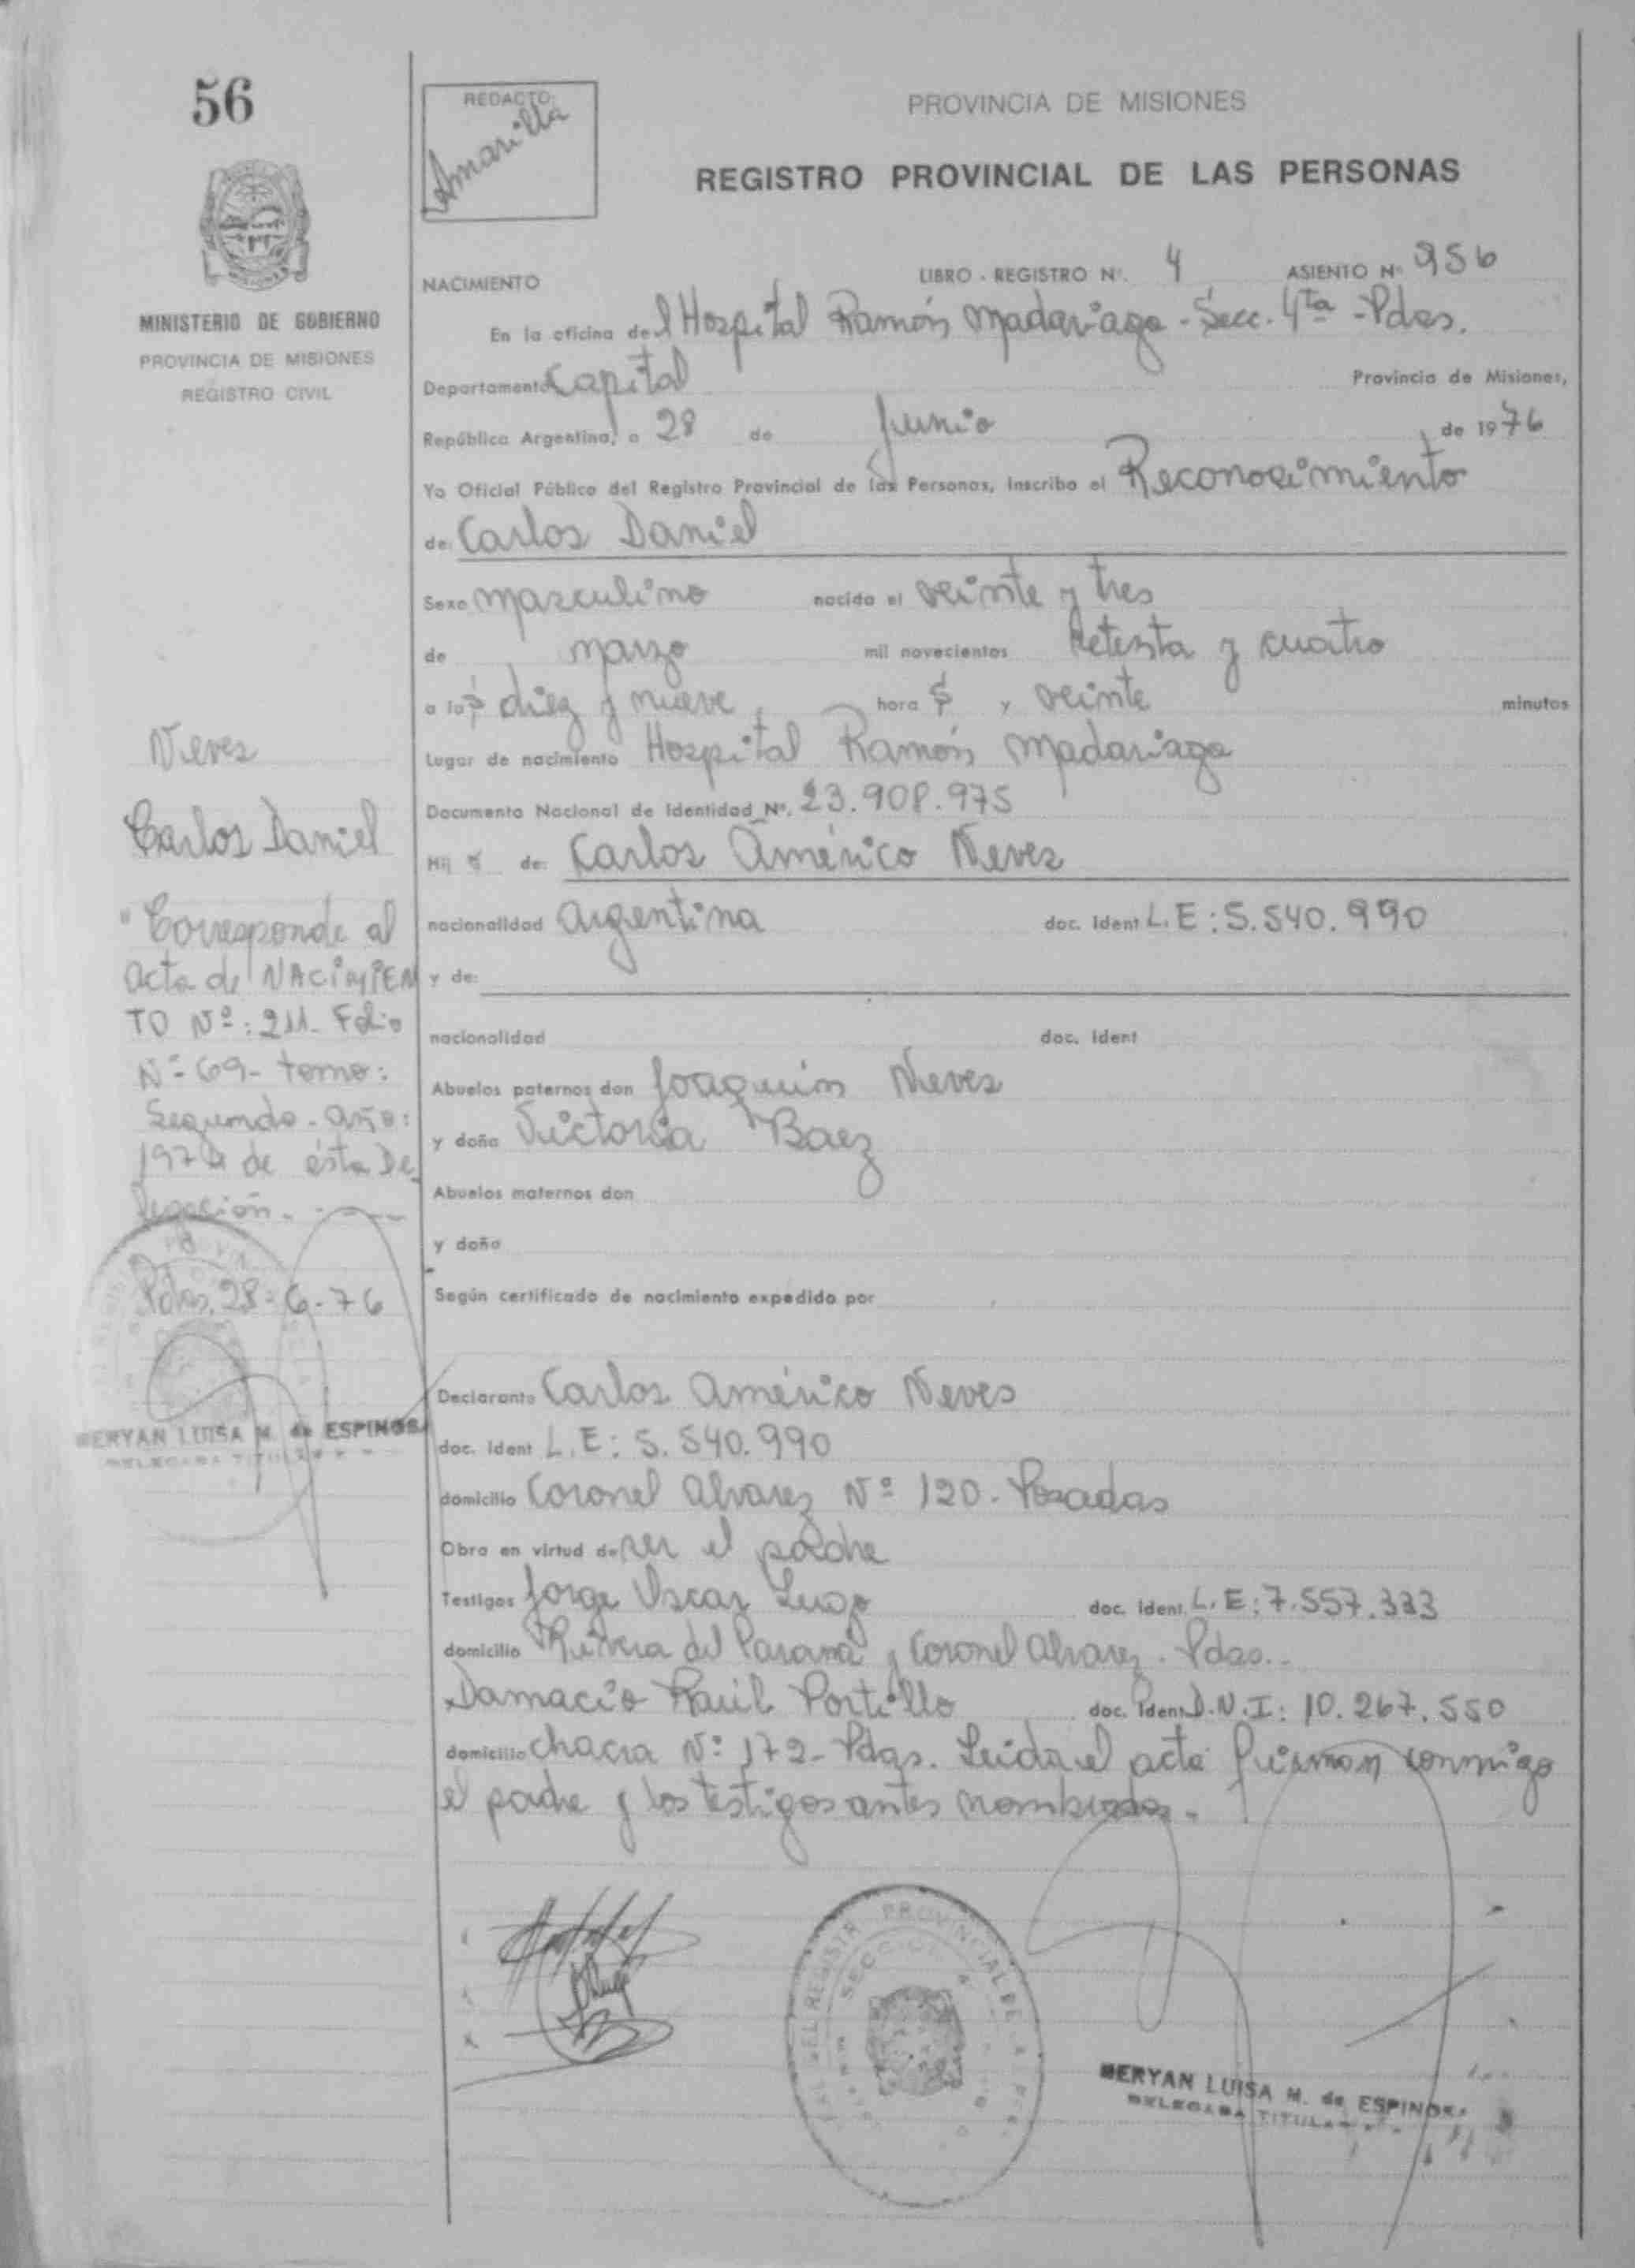 56
REDACTO:
Amarilla
PROVINCIA DE MISIONES
REGISTRO PROVINCIAL DE LAS PERSONAS
MINISTERIO DE GOBIERNO
PROVINCIA DE MISIONES
REGISTRO CIVIL
NACIMIENTO LIBRO - REGISTRO Nº. 4 ASIENTO Nº 956
En la oficina del Hospital Ramón Madariaga - Secc. 4ta - Pdas.
Departamento Capital Provincia de Misiones,
República Argentina, a 28 de Junio de 1976
Yo Oficial Público del Registro Provincial de las Personas, inscribo el Reconocimiento
de: Carlos Daniel
Sexo masculino nacido el veinte y tres
de marzo mil novecientos setenta y cuatro
a las diez y nueve hora s y veinte minutos
Lugar de nacimiento Hospital Ramón Madariaga
Documento Nacional de Identidad Nº. 23.908.975
Hij o de: Carlos Américo Neves
nacionalidad argentina doc. Ident L.E: 5.540.990
y de:
nacionalidad doc. Ident
Abuelos paternos don Joaquín Neves
y doña Victoria Baez
Abuelos maternos don
y doña
Según certificado de nacimiento expedido por
Declarante Carlos Américo Neves
doc. Ident L.E: 5.540.990
domicilio Coronel Alvarez Nº 120 - Posadas
Obra en virtud de ser el padre
Testigos Jorge Oscar Lugo doc. Ident. L.E: 7.557.333
domicilio Rivera del Paraná y Coronel Alvarez - Pdas.
Damacio Raúl Portillo doc. Ident D.N.I: 10.267.550
domicilio chacra Nº 172 - Pdas. Leida el acta firman conmigo
el padre y los testigos antes nombrados.
Neves
Carlos Daniel
"Corresponde al
acta de NACIMIEN
TO Nº: 211 - Folio
Nº 69 - tomo:
Segundo - año:
1974 de ésta De
legación.
Pdas, 28-6-76
MERYAN LUISA M. de ESPINOSA
DELEGADA TITULAR
MERYAN LUISA M. de ESPINOSA
DELEGADA TITULAR